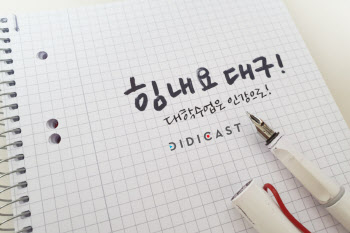 힘내요 대구!
대학수업은 인강으로!
DIDICAST